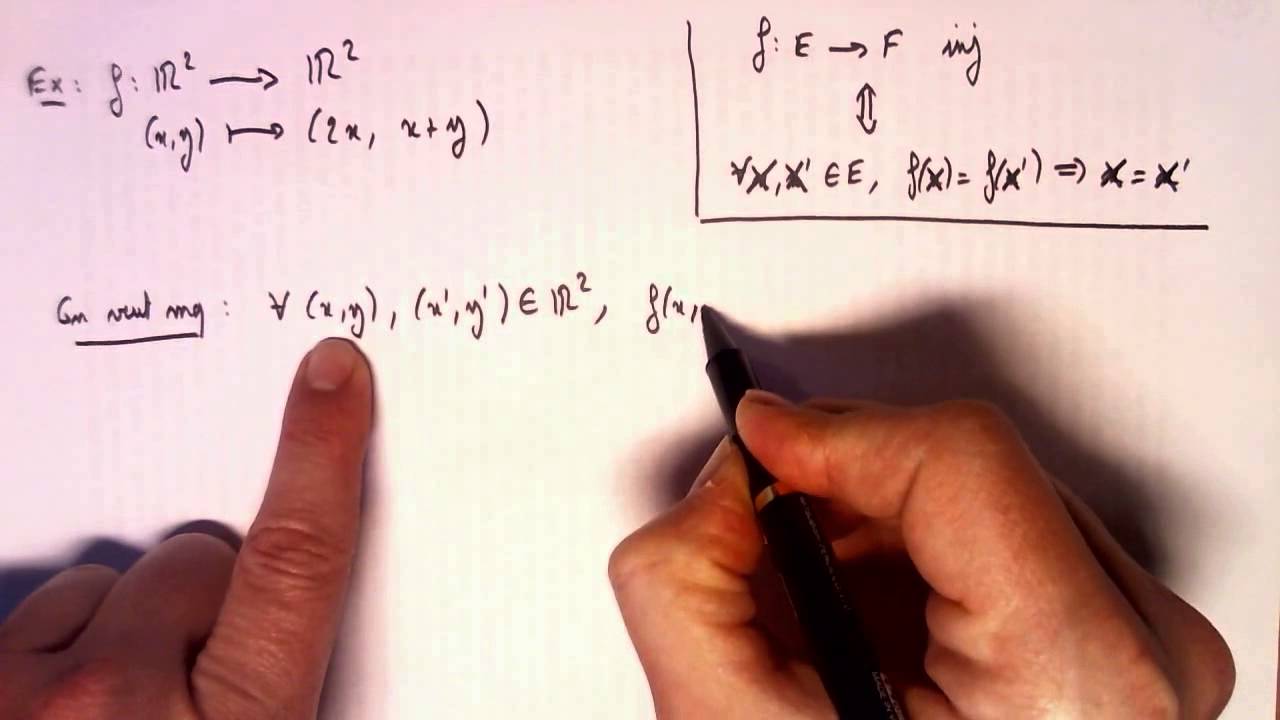 Ex : f : ℝ² ⟶ ℝ²
(x,y) ⟼ (2x, x+y)
f : E ⟶ F inj
⇕
∀x,x' ∈ E, f(x) = f(x') ⇒ x = x'
On veut mq : ∀ (x,y), (x',y') ∈ ℝ², f(x,